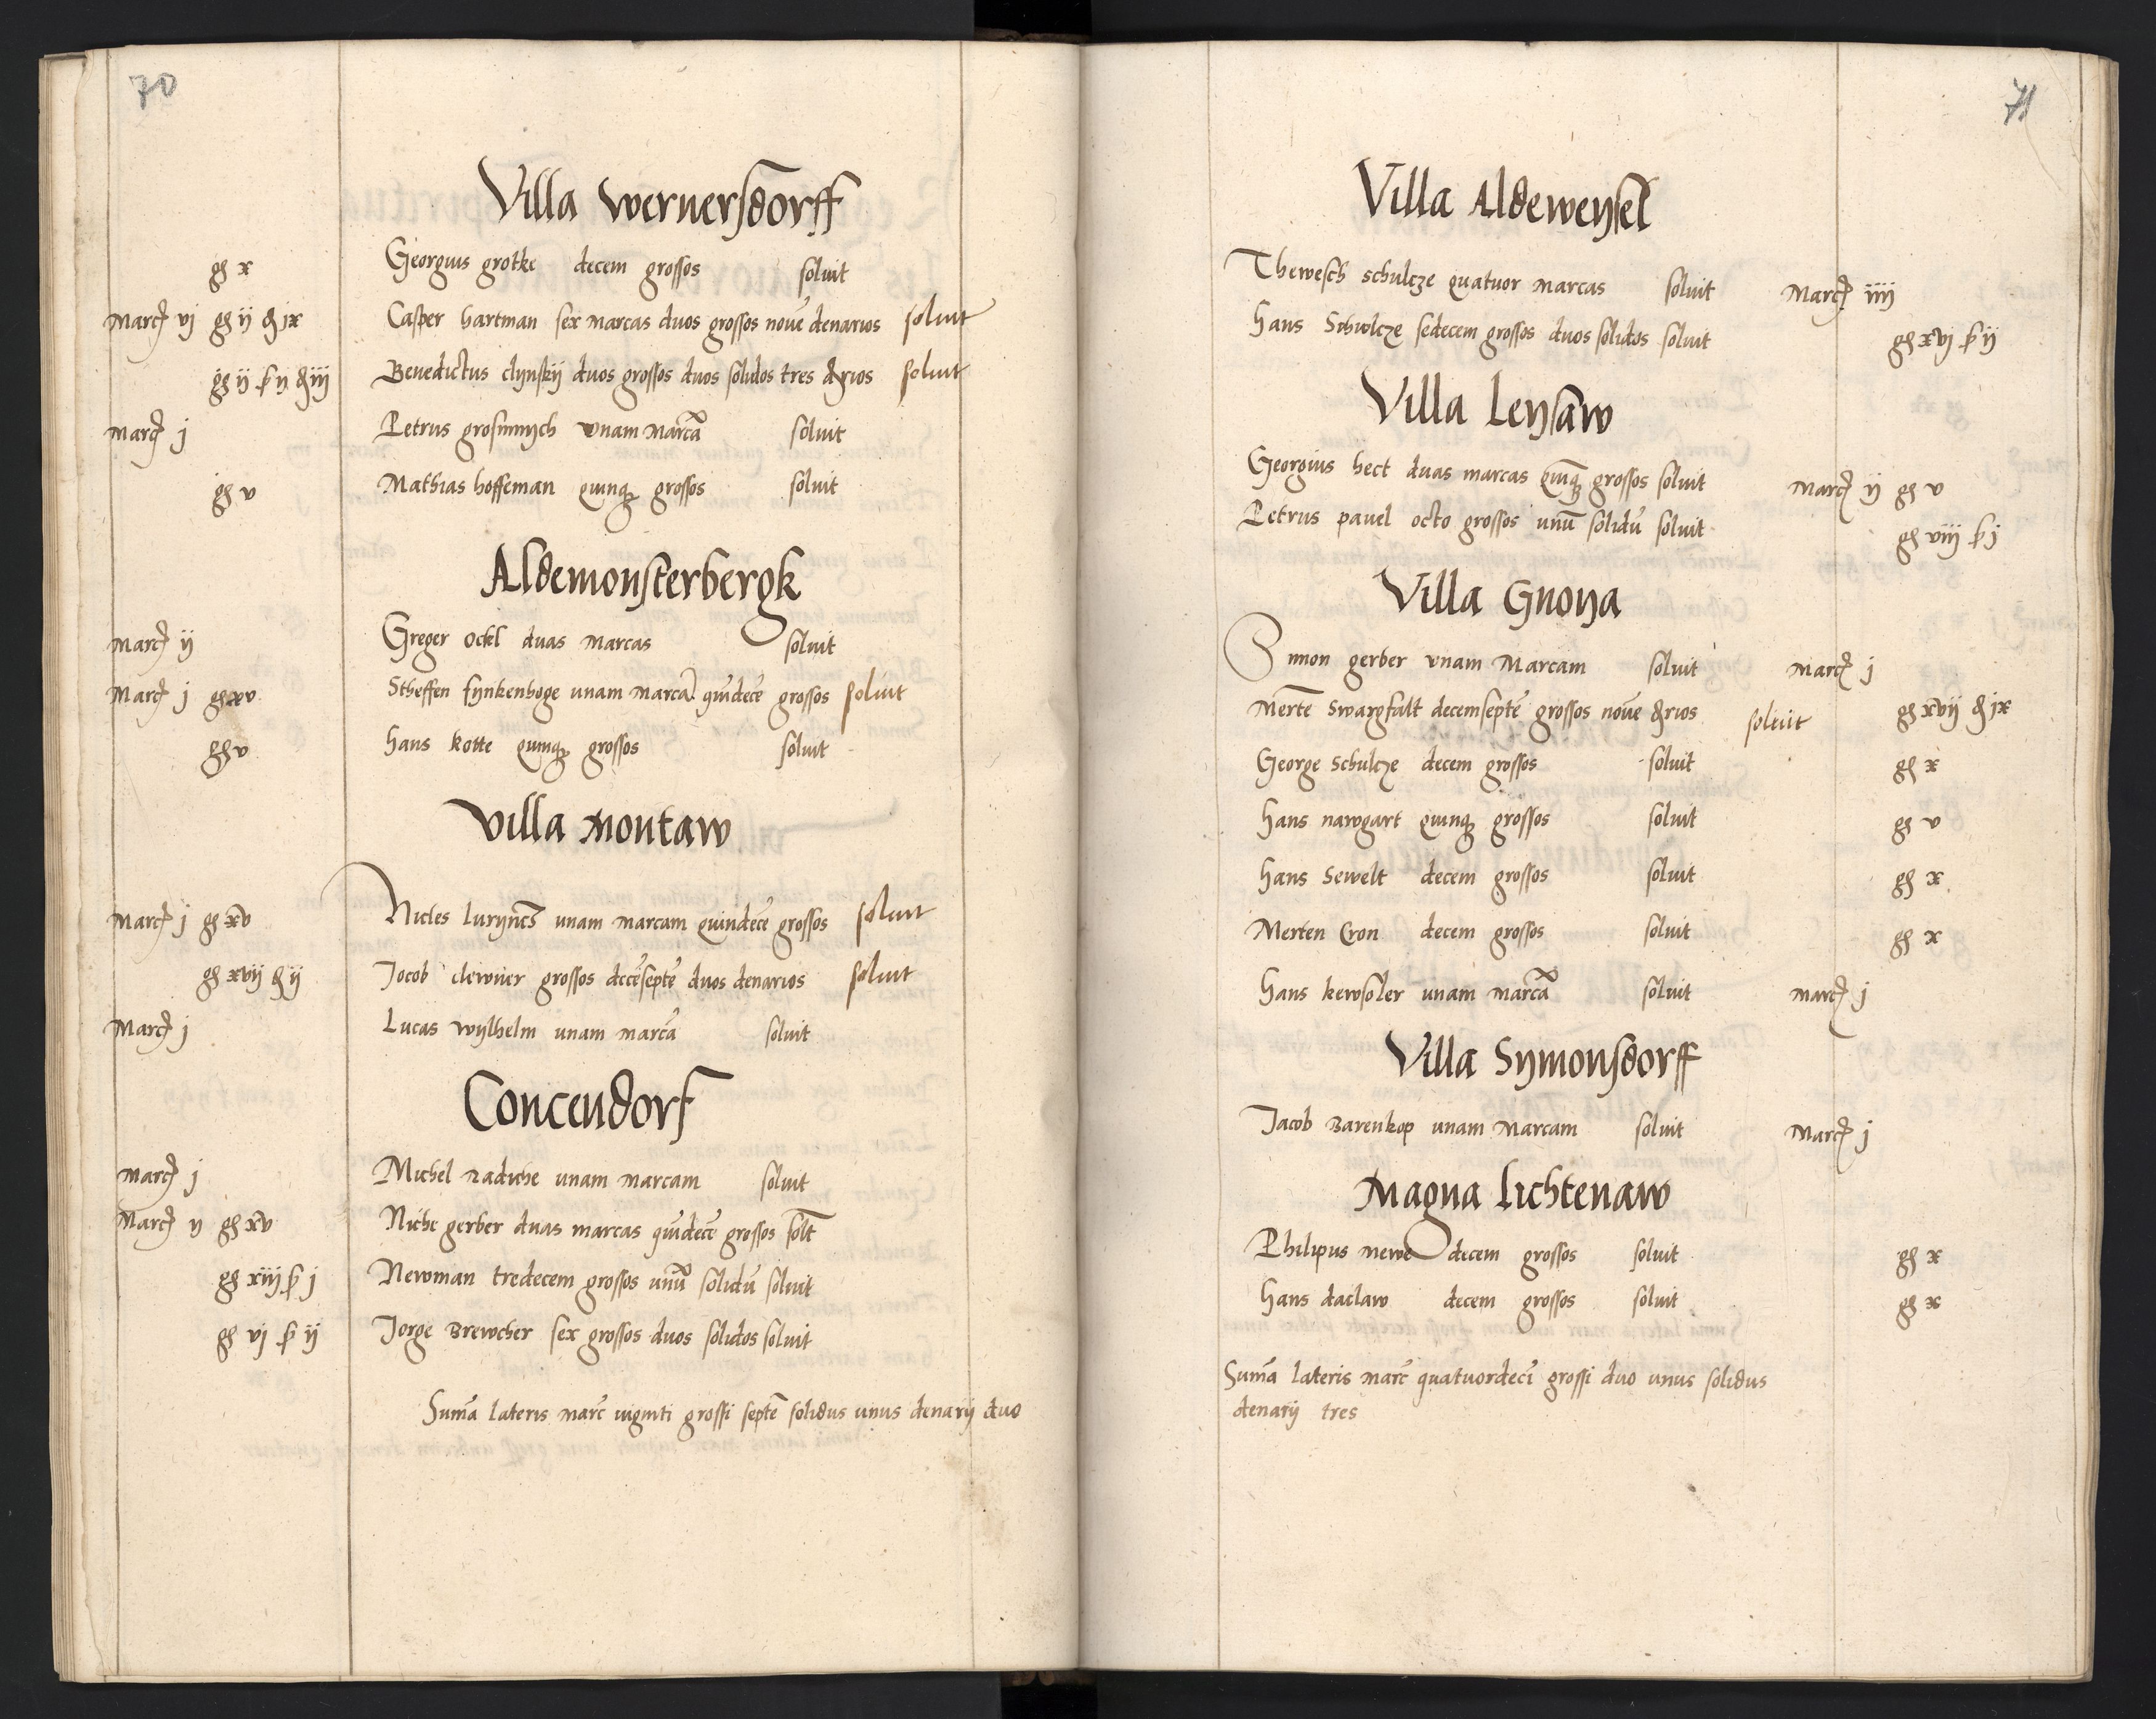 70
Villa Wernersdorff
gś x Georgius grotke decem grossos soluit
Marcę vj gś ij đ ix Casper hartman sex marcas duos grossos nouē denarios soluit
gś ij ß ij đ iij Benedictus clynskij duos grossos duos solidos tres đrios soluit
Marcę j Petrus unam Marcā soluit
gś v Mathias hoffeman quinqȝ grossos soluit
Aldemonsterbergk
Marcę ij Greger Ockl duas Marcas soluit
Marcę j gś xv Stheffen fynkenhoge unam Marcā quīdecē grossos soluit
gś v hans kotte quinqȝ grossos soluit
Villa Montaw
Marcę j gś xv Nicles unam marcam quindecē grossos soluit
gś xvij đ ij Jocob clewner grossos decēseptē duos denarios soluit
Marcę j Lucas wylhelm unam marcā soluit
Concendorf
Marcę j Michel Radiche unam marcam soluit
Marcę ij gś xv Niche gerber duas marcas quīdecē grossos solt
gś xiij ß j Newman tredecem grossos unū solidū soluit
gś vj ß ij Jorge Brewcher sex grossos duos solidos soluit
Sumā lateris marc̄ uiginti grossi septē solidus unus denarij duo
71
Villa Aldeweysel
Thewesch schulcze quatuor marcas soluit Marcę iiij
hans Schwlcze sedecem grossos duos solidos soluit gś xvj ß ij
Villa Leysaw
Georgius hect duas marcas quīqȝ grossos soluit Marcę ij gś v
Petrus pauel octo grossos unū solidū soluit gś viij ß j
Villa Gnoya
Simon gerber unam Marcam soluit Marcę j
Mertē Swargfalt decemseptē grossos nouē đrios soluit gś xvij đ ix
George Schulcze decem grossos soluit gś x
hans nawgart quinqȝ grossos soluit gś v
hans Sewelt decem grossos soluit gś x
Merten Cron decem grossos soluit gś x
hans kewsoler unam marcā soluit Marcę j
Villa Symonsdorff
Jacob Barenkop unam Marcam soluit Marcę j
Magna Lichtenaw
Philipus newe decem grossos soluit gś x
hans daclaw decem grossos soluit gś x
Sumā lateris marc̄ quatuordecī grossi duo unus solidus
denarij tres